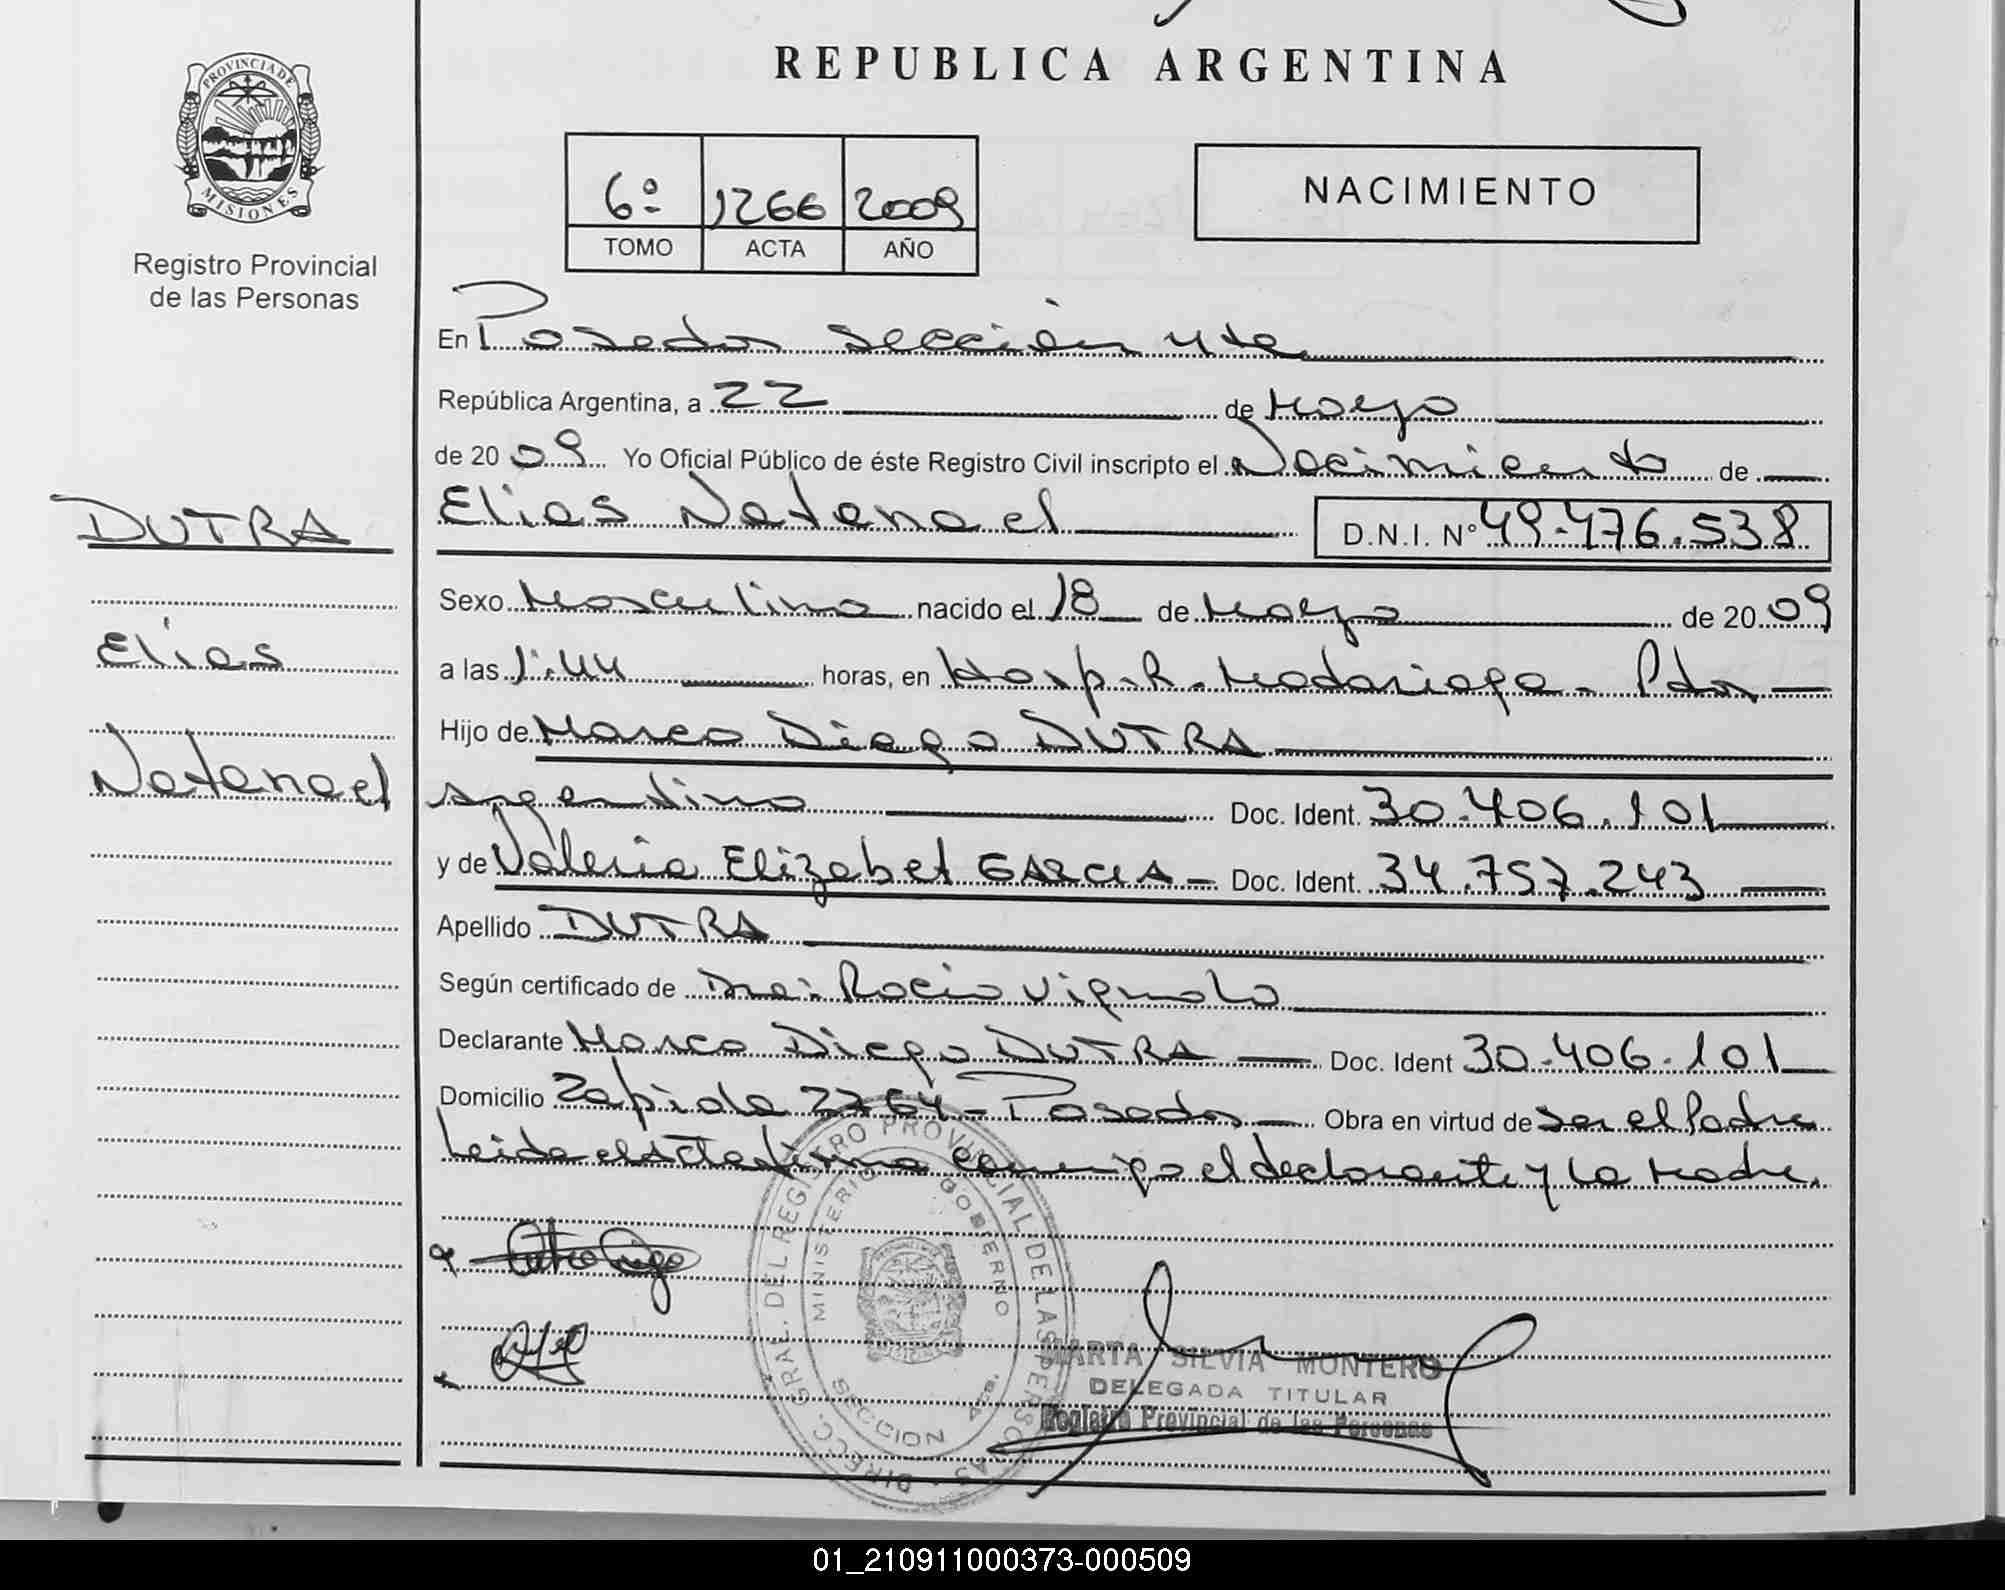 REPUBLICA ARGENTINA
PROVINCIA DE
MISIONES
Registro Provincial
de las Personas
6º 1266 2009
TOMO ACTA AÑO
NACIMIENTO
En Posadas sección 4ta
República Argentina, a 22 de Mayo
de 2009 Yo Oficial Público de éste Registro Civil inscripto el Nacimiento de
Elias Natanael D.N.I. Nº 49.476.538
DUTRA
Elias
Natanael
Sexo Masculino nacido el 18 de Mayo de 2009
a las 1:44 horas, en Hosp. R. Madariaga - Pdas
Hijo de Marco Diego DUTRA
argentino Doc. Ident. 30.406.101
y de Valeria Elizabet GARCIA - Doc. Ident. 34.757.243
Apellido DUTRA
Según certificado de Dra: Rocio Vignolo
Declarante Marco Diego DUTRA Doc. Ident 30.406.101
Domicilio Zapiola 2764 - Posadas Obra en virtud de ser el Padre
Leida el Acta firma conmigo el declarante y la Madre.
DIRECC. GRAL. DEL REGISTRO PROVINCIAL DE LAS PERSONAS
MINISTERIO GOBIERNO
SECCION
MARTA SILVIA MONTERO
DELEGADA TITULAR
Registro Provincial de las Personas
01_210911000373-000509